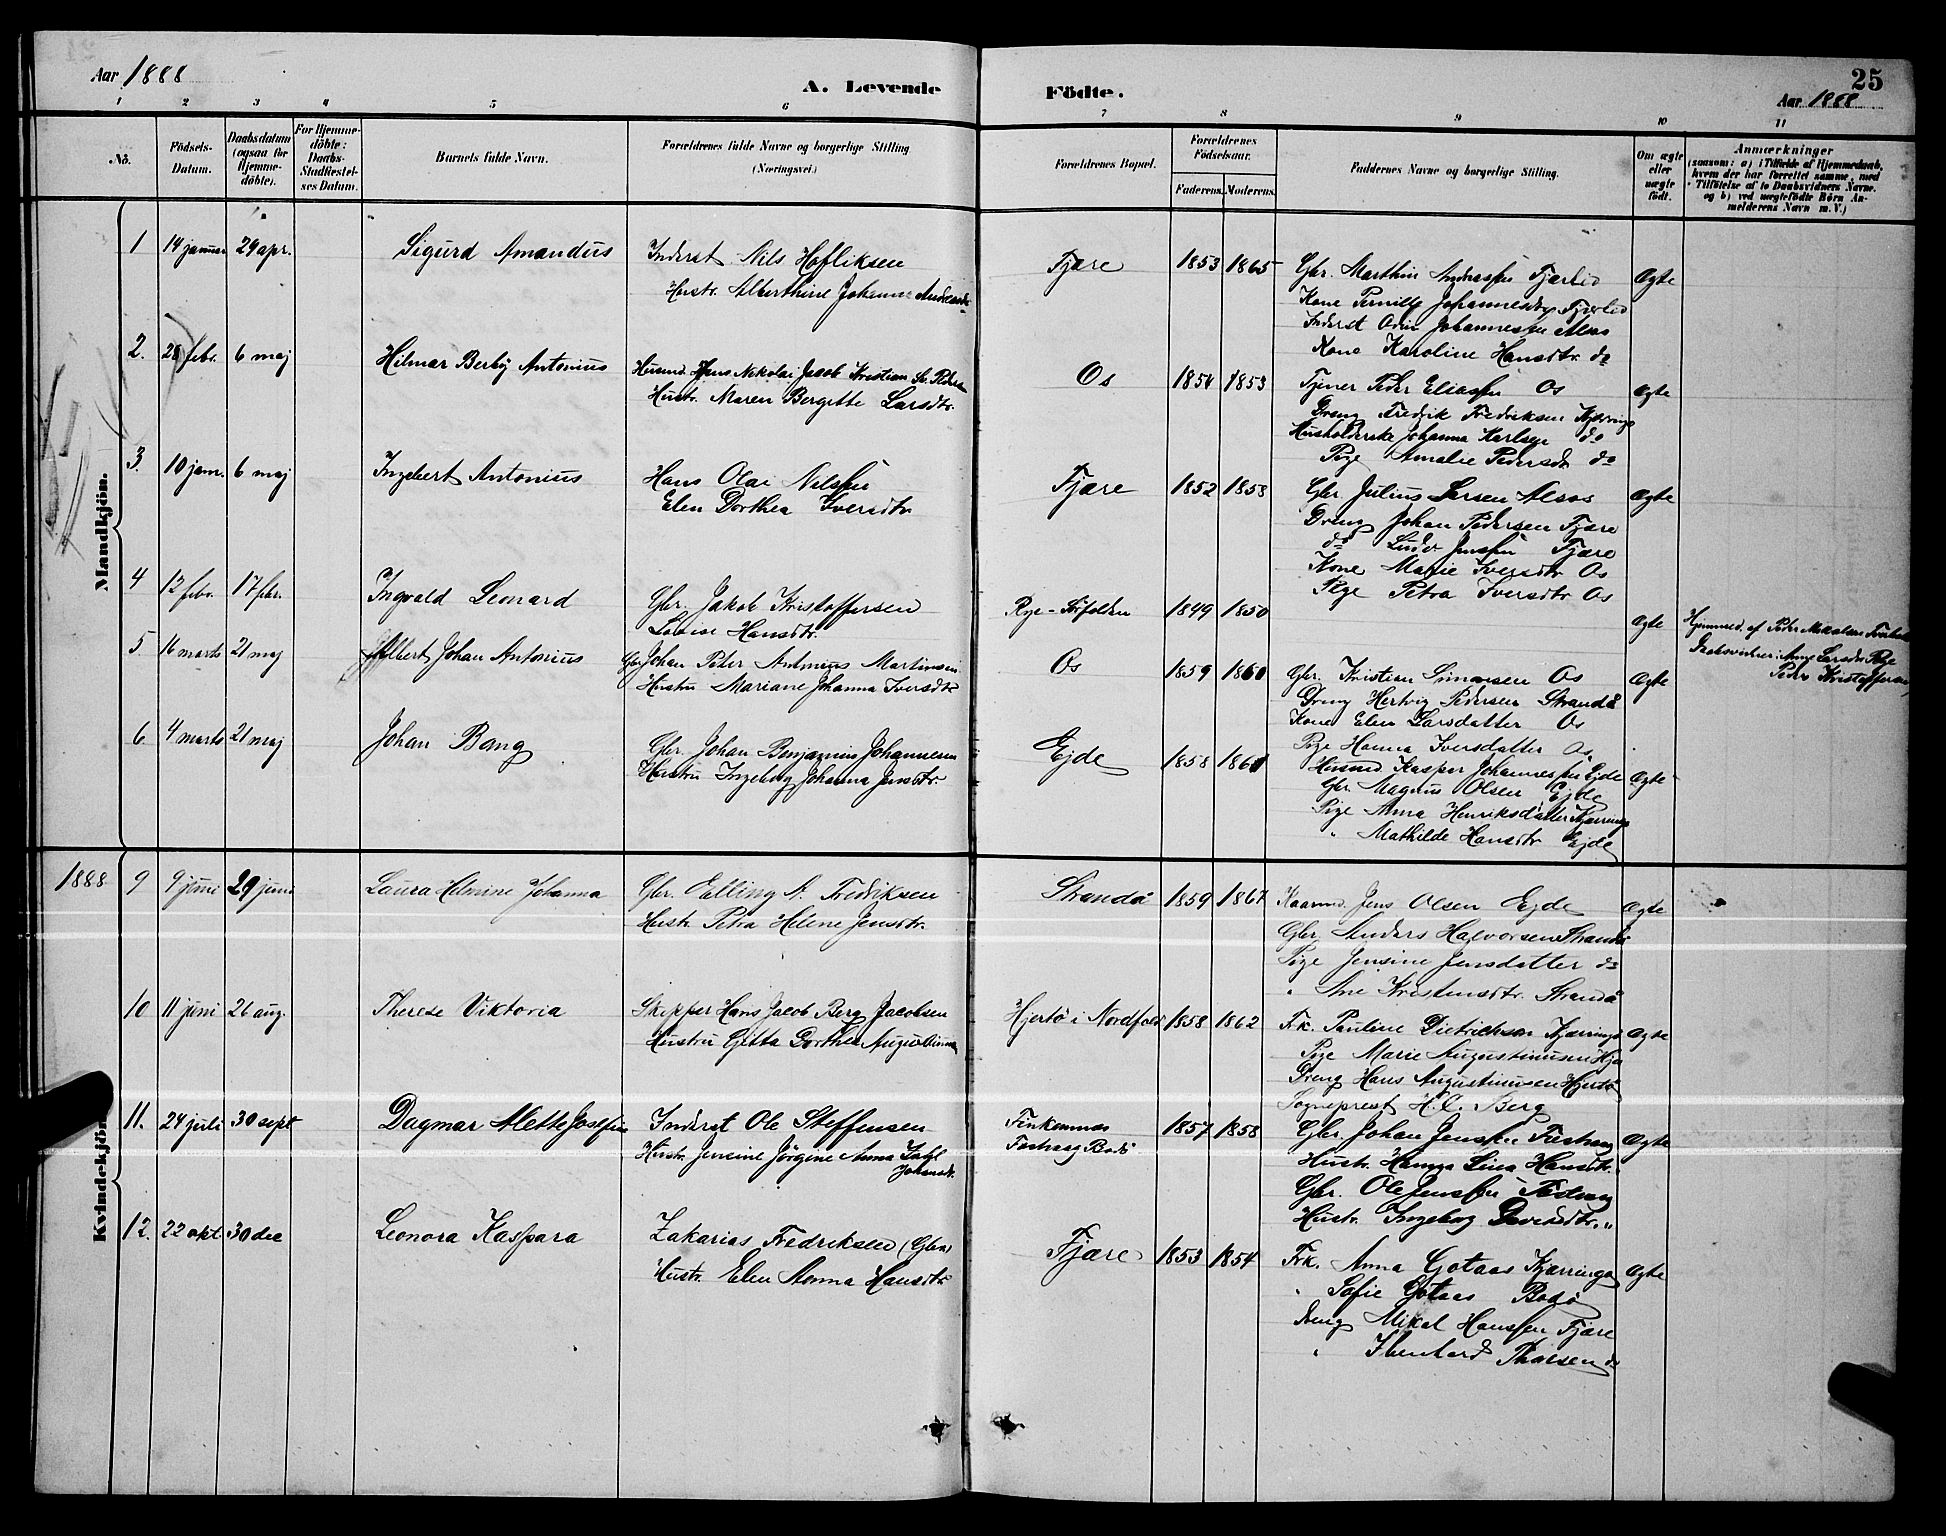 Aar 1888
A. Levende Födte.
25
Aar 1888
1 2 3 4 5 6 7 8 9 10 11
No.
Födsels-Datum.
Daabsdatum (ogsaa for Hjemme-döbte).
For Hjemme-döbte: Daabs-Stadfæstel-ses Datum.
Barnets fulde Navn.
Forældrenes fulde Navne og borgerlige Stilling (Næringsvei.)
Forældrenes Bopæl.
Forældrenes Födselsaar.
Faderens. Moderens.
Faddernes Navne og borgerlige Stilling.
Om ægte eller uægte født.
Anmærkninger (saasom: a) i Tilfælde af Hjemmedaab, hvem der har forrettet samme, med Tilföielse af to Daabsvidners Navne. og b) ved uægtefödte Börn Anmelderens Navn m. V.)
Mandkjön.
1 14 januar 29 apr. Sigurd Amandus
Inderst Nils Hofliksen
Hustr. Alberthine Johanna
Fjære 1853 1865
Gbr. Marthin Andreassen Fjærlid
Kone Pernille Johannesdtr Fjærlid
Inderst Odin Johannessen Alsos
Kone Karoline Hansdtr. do
Ægte
2. 28 febr. 6 maj Hilmar Berby Antonius
Husmd. Hans Nikolai Jacob Kristian Pedersen
Hustr. Maren Bergitte Larsdtr.
Os 1854 1853
Tjener Peder Eliassen Os
Dreng Fredrik Fredriksen Kjærringø
Husholderske Johanna Karlsen do
Pige Amalie Pedersdr do
Ægte
3. 10 jan. 6 maj Ingebert Antonius
Hans Olai Nilssen
Elen Dorthea Iversdtr
Fjære 1852 1853
Gbr. Julius Larsen Alsos
Dreng Johan Pedersen Fjære
do Jenssen Fjære
Kone Marie Iversdtr Os
Pige Petra Iversdtr Os
Ægte
4 12 febr. 17 febr. Ingvald Leonard
Gbr. Jakob Kristoffersen
Lovise Hansdtr.
1849 1850
Ægte
Hjemmed. af Peder
Daabsvidner: Anne Larsdtr
Peder Kristoffersen
5. 16 marts 21 maj Albert Johan Antonius
Gbr. Johan Peter Antonius Martinsen
Hustru Mariane Johanna Iversdtr
Os 1859 1860
Gbr. Kristian Simonsen Os
Dreng Hertvig Pedersen Strandå
Kone Elen Larsdatter Os
Pige Hanna Iversdatter Os
Ægte
6 4 marts 21 maj Johan Bang
Gbr. Johan Benjaminus Johannesen
Hustru Ingeborg Johanna Jensdtr
Ejde 1858 1860
Husmd. Kasper Johannessen Ejde
Gbr. Magnus Olsen Ejde
Pige Anna Henriksdatter Kjærringø
" Mathilde Hansdtr Ejde
Ægte
1888.
Kvindekjön.
9 9 juni 29 juni Laura Helmine Johanna
Gbr. Elling A. Fredriksen
Hustr. Petra Helene Jensdtr.
Strandå 1859 1867
Kaarmd. Jens Olsen Ejde
Gbr. Anders Halvorsen Strandå
Pige Jensine Jensdatter do
" Ane Kristensdtr. Strandå
Ægte
10 11 juni 26 aug. Therese Viktoria
Skipper Hans Jacob Berg Jacobsen
Hustru Gitta Dorthea Augustinusen
Hjertö i Nordfold 1858 1862
Frk. Pauline Dietrichson Kjærringø
Pige Marie Augustinusen
Dreng Hans Augustinusen Hjertö
Sogneprest H. C. Berg
Ægte
11. 24 juli 30 sept Dagmar Mette Josefine
Inderst Ole Steffensen
Hustr. Jensine Jörgine Anna
Johansdtr.
Finkonnæs
Bodö
1857 1858
Gbr. Johan Jenssen
Hustr. Hanna Lina Hansdtr.
Gbr. Ole Jenssen
Hustr. Ingeborg "
Ægte
12. 22 okt 30 dec Leonora Kaspara
Zakarias Fredriksen (Gbr.)
Hustr. Elen Anna Hansdtr
Fjære 1853 1854
Frk. Anna Gotaas Kjærringø
" Sofie Gotaas Bodö
Dreng Mikal Hanssen Fjære
" do
Ægte